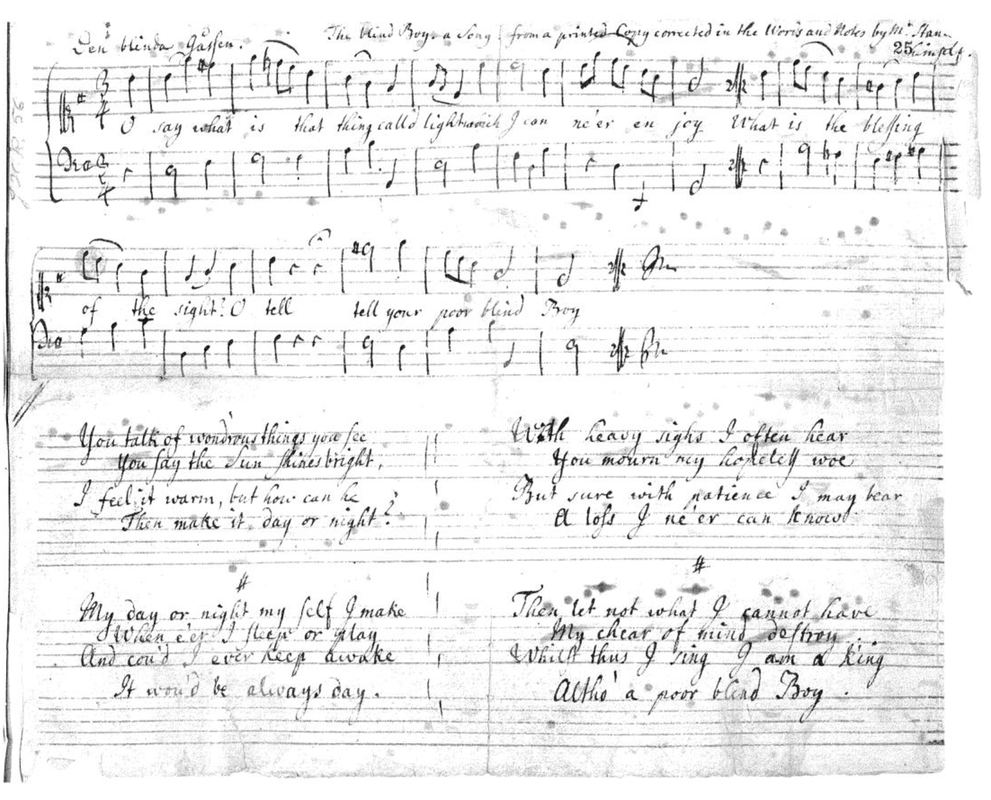 Den blinda Gåssen.
The blind Boy. a Song from a printed Copy corrected in the Words and Notes by Mr. Stan-
25 himself.
O say what is that thing call'd light which I can ne'er en joy What is the blessing
of the sight? O tell tell your poor blind Boy
You talk of wondrous things you see
You say the Sun shines bright,
I feel it warm, but how can he
Then make it day or night?
My day or night my self I make
When e'er I sleep or play
And cou'd I ever keep awake
It wou'd be always day.
With heavy sighs I often hear
You mourn my hopeless woe
But sure with patience I may bear
A loss I ne'er can know.
Then let not what I cannot have
My chear of mind destroy
Whilst thus I sing I am a King
Altho' a poor blind Boy.